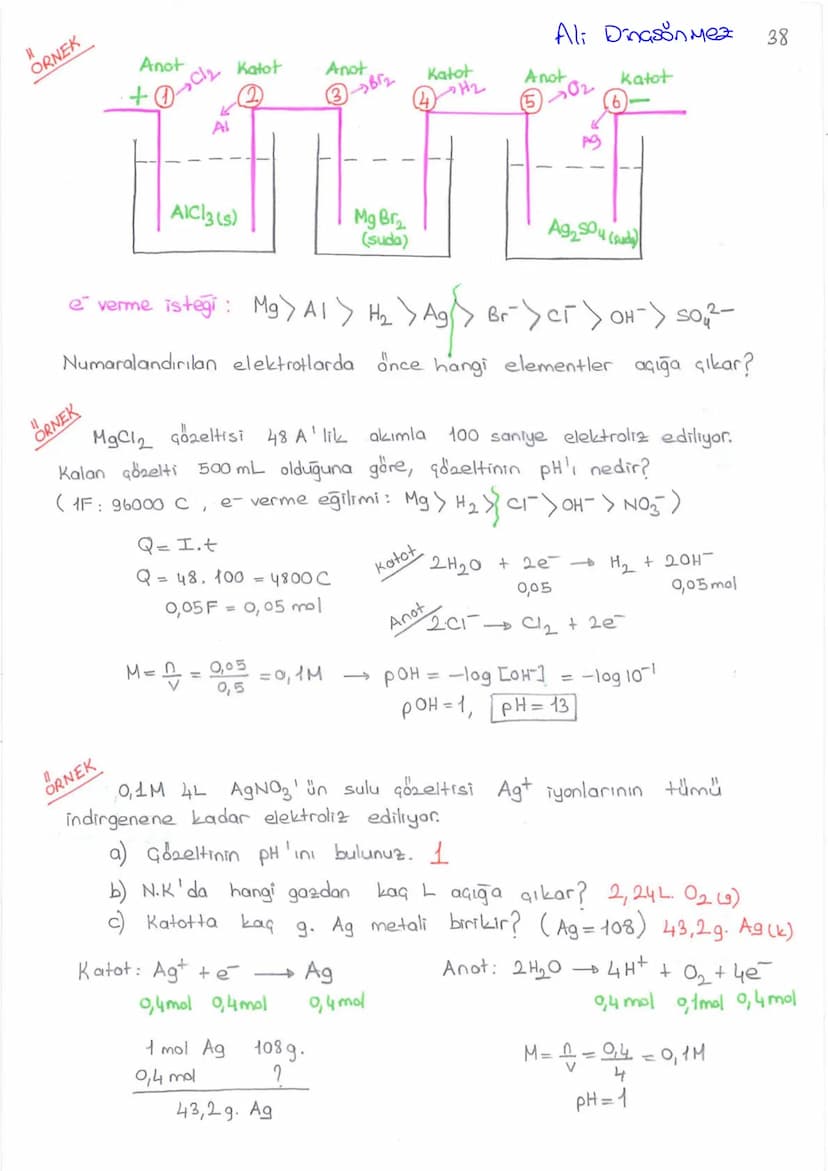 Ali Dinçsönmez 38
ÖRNEK
Anot Katot Anot Katot Anot Katot
+ 1 → Cl2 2 3 → Br2 4 → H2 5 → O2 6 −
Al Ag
AlCl3(s) MgBr2 (suda) Ag2SO4(suda)
e⁻ verme isteği : Mg > Al > H2 > Ag > Br⁻ > Cl⁻ > OH⁻ > SO4²⁻
Numaralandırılan elektrotlarda önce hangi elementler açığa çıkar?
ÖRNEK
MgCl2 çözeltisi 48 A'lik akımla 100 saniye elektroliz ediliyor.
Kalan çözelti 500 mL olduğuna göre, çözeltinin pH'ı nedir?
( 1F : 96000 C , e⁻ verme eğilimi : Mg > H2 > Cl⁻ > OH⁻ > NO3⁻ )
Q = I.t
Katot 2H2O + 2e⁻ → H2 + 2OH⁻
Q = 48 . 100 = 4800 C
0,05 0,05 mol
0,05 F = 0,05 mol
Anot 2Cl⁻ → Cl2 + 2e⁻
M = n/V = 0,05/0,5 = 0,1M → pOH = −log [OH⁻] = −log 10⁻¹
pOH = 1, pH = 13
ÖRNEK
0,1M 4L AgNO3'ün sulu çözeltisi Ag⁺ iyonlarının tümü
indirgenene kadar elektroliz ediliyor.
a) Çözeltinin pH'ını bulunuz. 1
b) N.K'da hangi gazdan kaç L açığa çıkar? 2,24L. O2(g)
c) Katotta kaç g. Ag metali birikir? (Ag = 108) 43,2g. Ag(k)
Katot : Ag⁺ + e⁻ → Ag Anot : 2H2O → 4H⁺ + O2 + 4e⁻
0,4mol 0,4mol 0,4mol 0,4 mol 0,1mol 0,4 mol
1 mol Ag 108 g.
0,4 mol ?
M = n/V = 0,4/4 = 0,1M
43,2 g. Ag
pH = 1